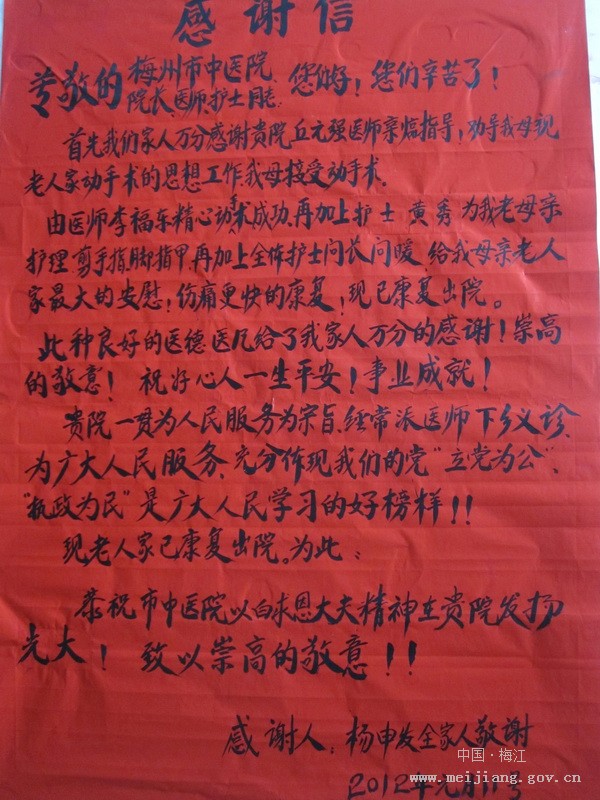 感谢信
尊敬的梅州市中医院
院长、医师、护士同志：您们好！您们辛苦了！
首先我们家人万分感谢贵院丘元强医师亲临指导，劝导我母亲
老人家动手术的思想工作，我母接受动手术。
由医师李福东精心动手术成功、再加上护士 黄秀 为我老母亲
护理、剪手指脚指甲、再加上全体护士问长问暖、给我母亲老人
家最大的安慰，伤痛更快的康复，现已康复出院。
此种良好的医德医风给了我家人万分的感谢！崇高
的敬意！祝好心人一生平安！事业成就！
贵院一贯为人民服务为宗旨、经常派医师下乡义诊、
为广大人民服务、充分体现我们的党“立党为公”、
“执政为民”是广大人民学习的好榜样！！
现老人家已康复出院。为此：
恭祝市中医院以白求恩大夫精神在贵院发扬
光大！ 致以崇高的敬意！！
感谢人：杨申发全家人敬谢
中国·梅江
www.meijiang.gov.cn
2012年元月11号